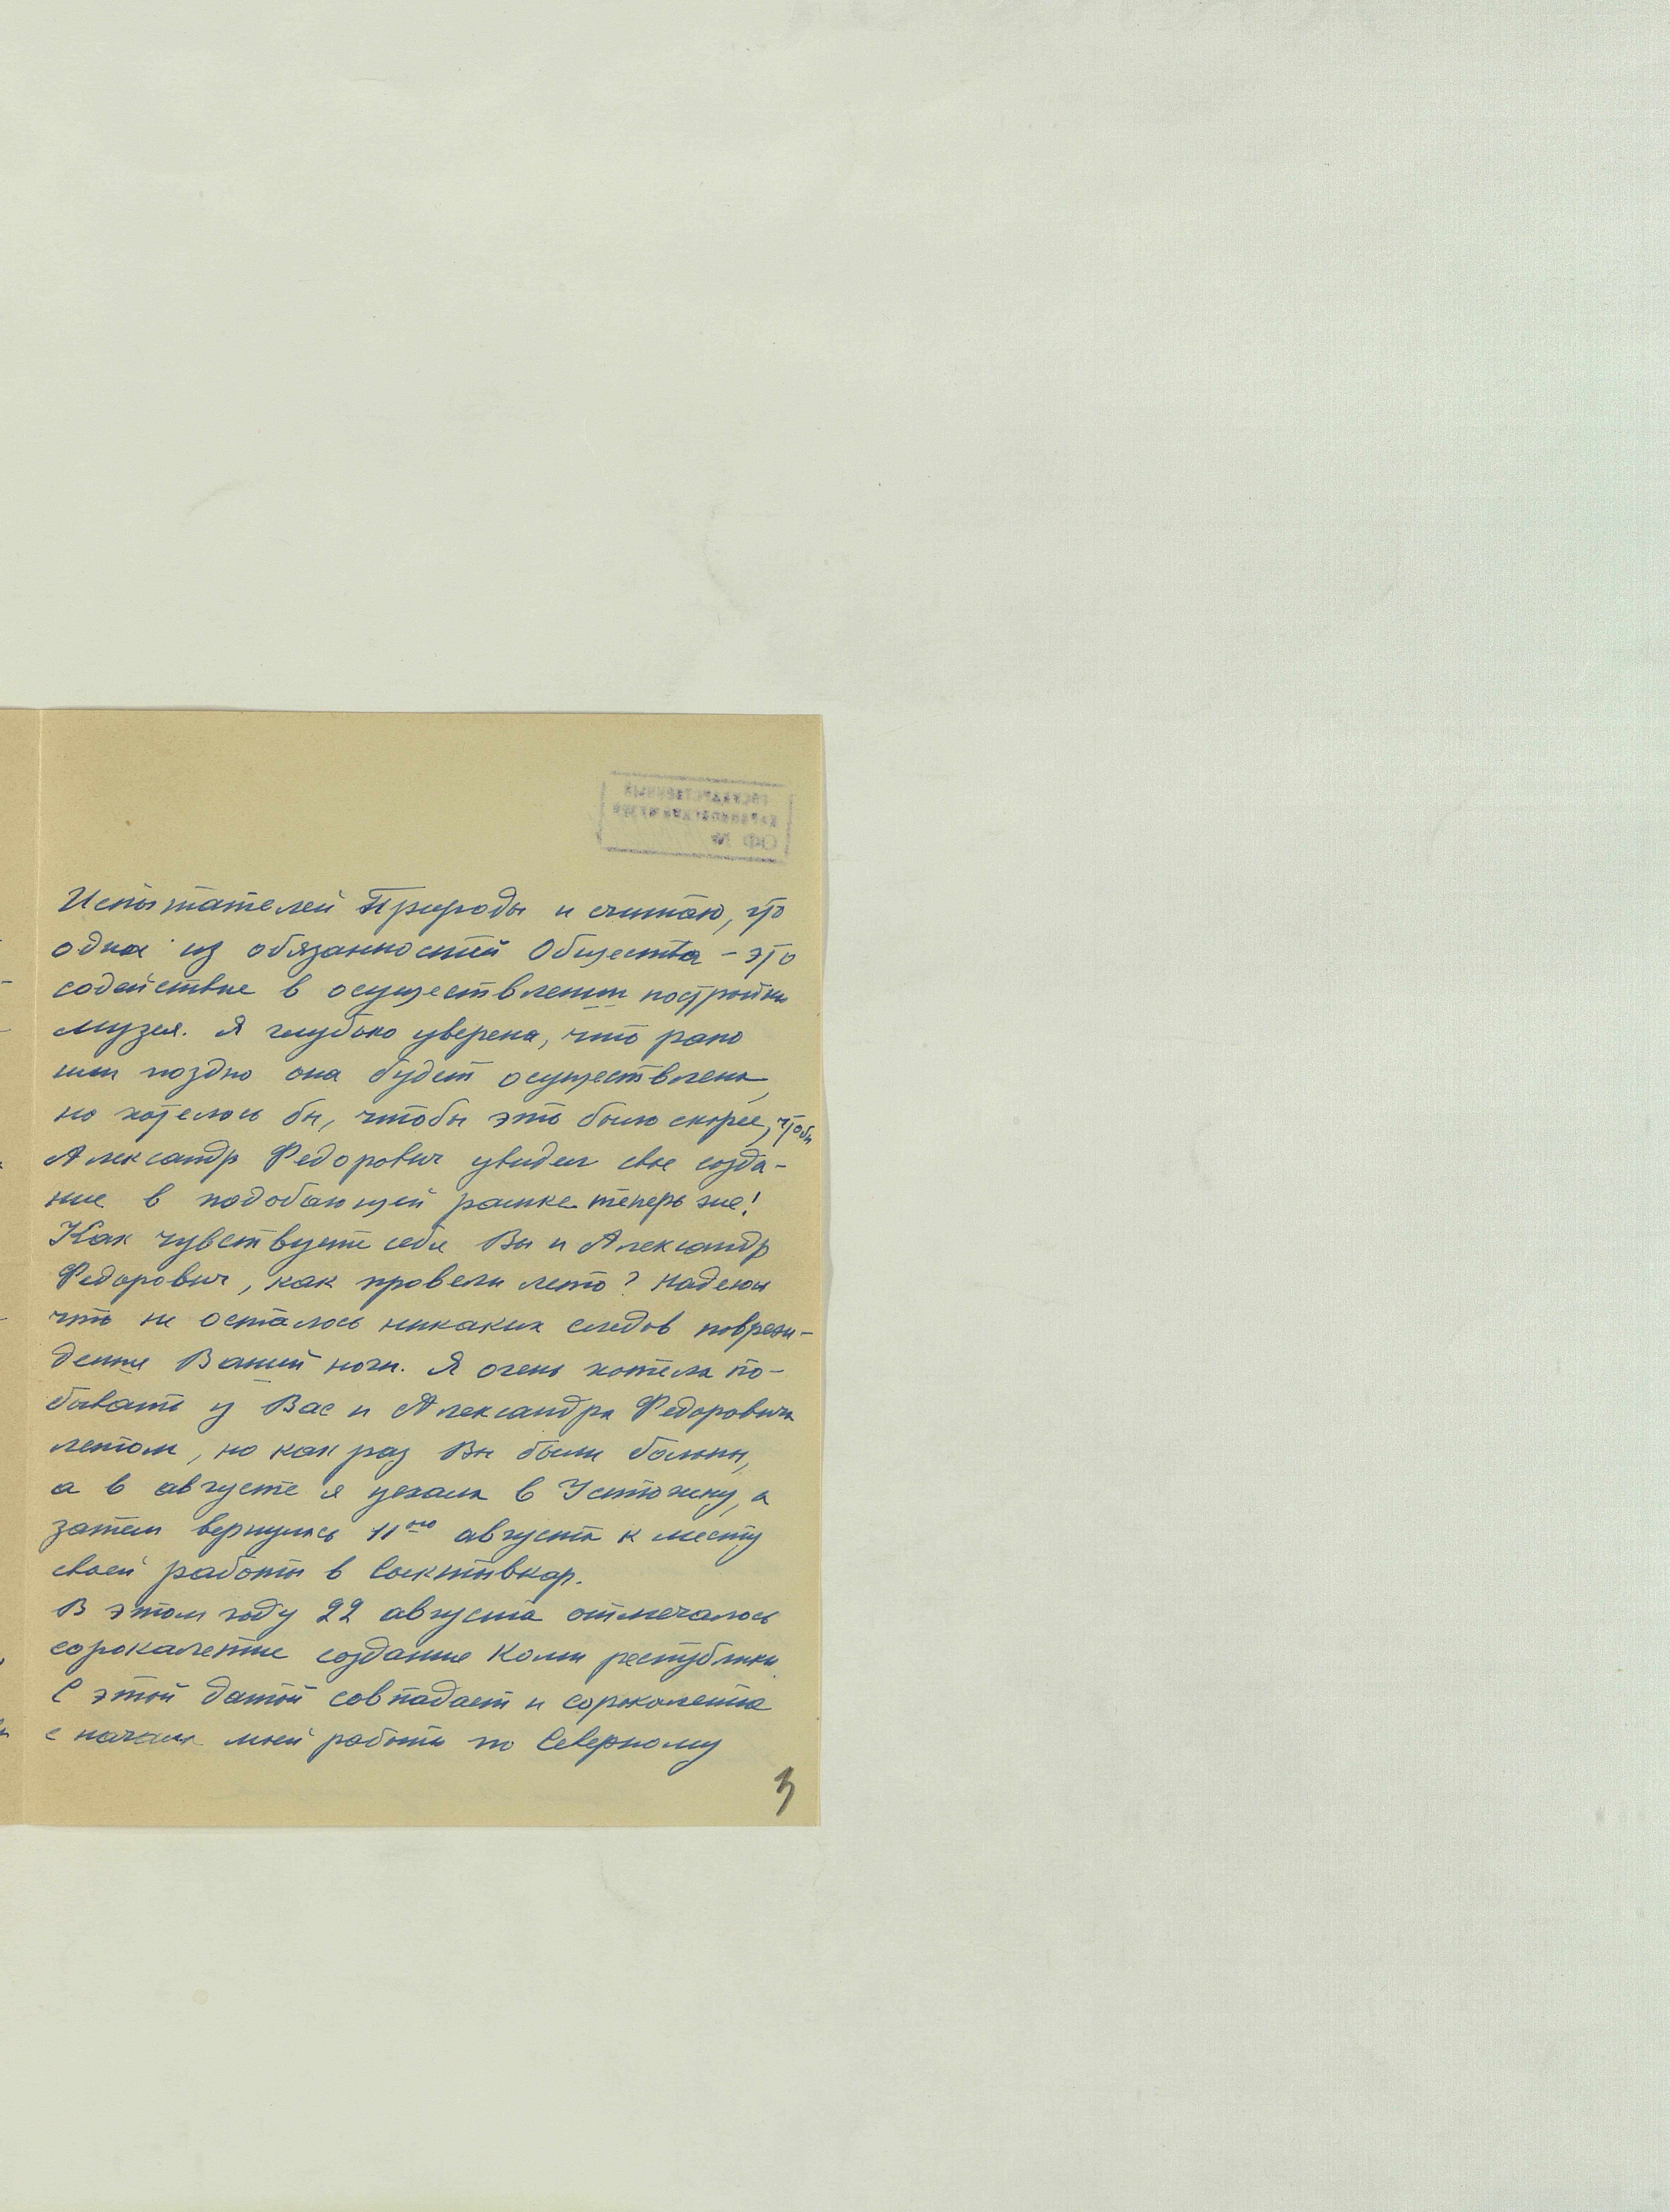 ГОСУДАРСТВЕННЫЙ
ДАРВИНОВСКИЙ МУЗЕЙ
ОФ №
Испытателей Природы и считаю, что
одна из обязанностей Общества – это
содействие в осуществлении постройки
музея. Я глубоко уверена, что рано
или поздно она будет осуществлена,
но хотелось бы, чтобы это было скорее, чтобы
Александр Федорович увидел свое созда-
ние в подобающей рамке теперь же!
Как чувствуете себя Вы и Александр
Федорович, как провели лето? Надеюсь
что не осталось никаких следов повреж-
дения Вашей ноги. Я очень хотела по-
бывать у Вас и Александра Федоровича
летом, но как раз Вы были больны,
а в августе я уехала в Устюжну, а
затем вернулась 11го августа к месту
своей работы в Сыктывкар.
В этом году 22 августа отмечалось
сорокалетие создания Коми республики.
С этой датой совпадает и сорокалетие
с начала моей работы по Северному
3